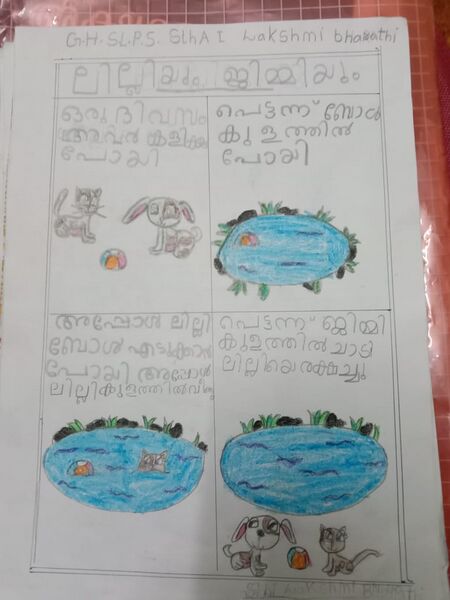 G.H.S.L.P.S. SthA I Lakshmi bharathi
ലില്ലിയും ജിമ്മിയും
ഒരു ദിവസം
അവർ കളിക്കാൻ
പോയി
പെട്ടന്ന് ബോൾ
കുളത്തിൽ
പോയി
അപ്പോൾ ലില്ലി
ബോൾ എടുക്കാൻ
പോയി അപ്പോൾ
ലില്ലി കുളത്തിൽ വീണു
പെട്ടന്ന് ജിമ്മി
കുളത്തിൽ ചാടി
ലില്ലിയെ രക്ഷിച്ചു
Lakshmi Bharathi